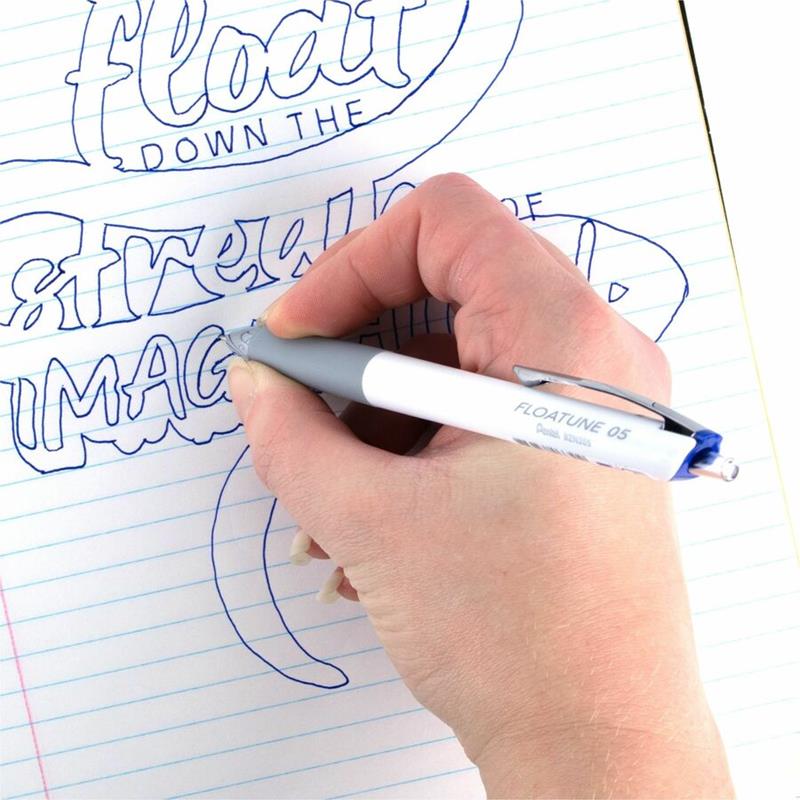 float
DOWN THE
stream OF
IMAG
FLOATUNE 05
Pentel BXN305